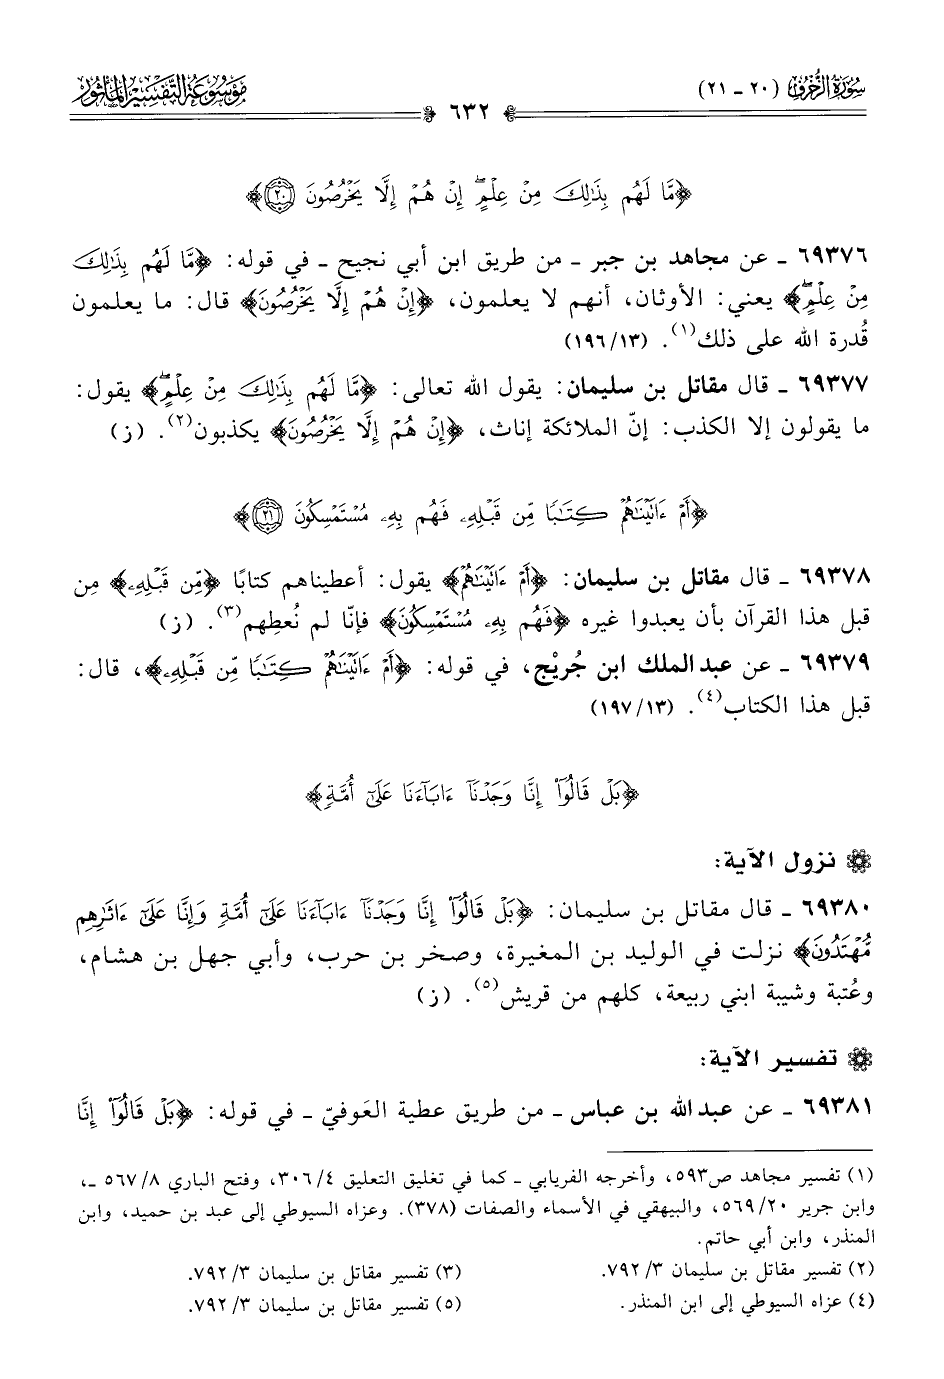 سُورَةُ الزُّخْرُفِ (٢٠ - ٢١)
٦٣٢
مَوْسُوعَةُ التَّفْسِيرِ المَأْثُورِ
﴿مَّا لَهُم بِذَٰلِكَ مِنْ عِلْمٍۖ إِنْ هُمْ إِلَّا يَخْرُصُونَ ٢٠﴾
٦٩٣٧٦ - عن مجاهد بن جبر - من طريق ابن أبي نجيح - في قوله: ﴿مَّا لَهُم بِذَٰلِكَ
مِنْ عِلْمٍۖ﴾ يعني: الأوثان، أنهم لا يعلمون، ﴿إِنْ هُمْ إِلَّا يَخْرُصُونَ﴾ قال: ما يعلمون
قُدرة الله على ذلك(١). (١٣/١٩٦)
٦٩٣٧٧ - قال مقاتل بن سليمان: يقول الله تعالى: ﴿مَّا لَهُم بِذَٰلِكَ مِنْ عِلْمٍۖ﴾ يقول:
ما يقولون إلا الكذب: إنّ الملائكة إناث، ﴿إِنْ هُمْ إِلَّا يَخْرُصُونَ﴾ يكذبون(٢). (ز)
﴿أَمْ ءَاتَيْنَٰهُمْ كِتَٰبًا مِّن قَبْلِهِۦ فَهُم بِهِۦ مُسْتَمْسِكُونَ ٢١﴾
٦٩٣٧٨ - قال مقاتل بن سليمان: ﴿أَمْ ءَاتَيْنَٰهُمْ﴾ يقول: أعطيناهم كتابًا ﴿مِّن قَبْلِهِۦ﴾ مِن
قبل هذا القرآن بأن يعبدوا غيره ﴿فَهُم بِهِۦ مُسْتَمْسِكُونَ﴾ فإنّا لم نُعطِهم(٣). (ز)
٦٩٣٧٩ - عن عبد الملك ابن جُرَيْج، في قوله: ﴿أَمْ ءَاتَيْنَٰهُمْ كِتَٰبًا مِّن قَبْلِهِۦ﴾، قال:
قبل هذا الكتاب(٤). (١٣/١٩٧)
﴿بَلْ قَالُوٓا۟ إِنَّا وَجَدْنَآ ءَابَآءَنَا عَلَىٰٓ أُمَّةٍ﴾
نزول الآية:
٦٩٣٨٠ - قال مقاتل بن سليمان: ﴿بَلْ قَالُوٓا۟ إِنَّا وَجَدْنَآ ءَابَآءَنَا عَلَىٰٓ أُمَّةٍ وَإِنَّا عَلَىٰٓ ءَاثَٰرِهِم
مُّهْتَدُونَ﴾ نزلت في الوليد بن المغيرة، وصخر بن حرب، وأبي جهل بن هشام،
وعُتبة وشيبة ابني ربيعة، كلهم من قريش(٥). (ز)
تفسير الآية:
٦٩٣٨١ - عن عبد الله بن عباس - من طريق عطية العَوفيّ - في قوله: ﴿بَلْ قَالُوٓا۟ إِنَّا
(١) تفسير مجاهد ص٥٩٣، وأخرجه الفريابي - كما في تغليق التعليق ٤/ ٣٠٦، وفتح الباري ٨/ ٥٦٧ -،
وابن جرير ٢٠/ ٥٦٩، والبيهقي في الأسماء والصفات (٣٧٨). وعزاه السيوطي إلى عبد بن حميد، وابن
المنذر، وابن أبي حاتم.
(٢) تفسير مقاتل بن سليمان ٣/ ٧٩٢. (٣) تفسير مقاتل بن سليمان ٣/ ٧٩٢.
(٤) عزاه السيوطي إلى ابن المنذر. (٥) تفسير مقاتل بن سليمان ٣/ ٧٩٢.